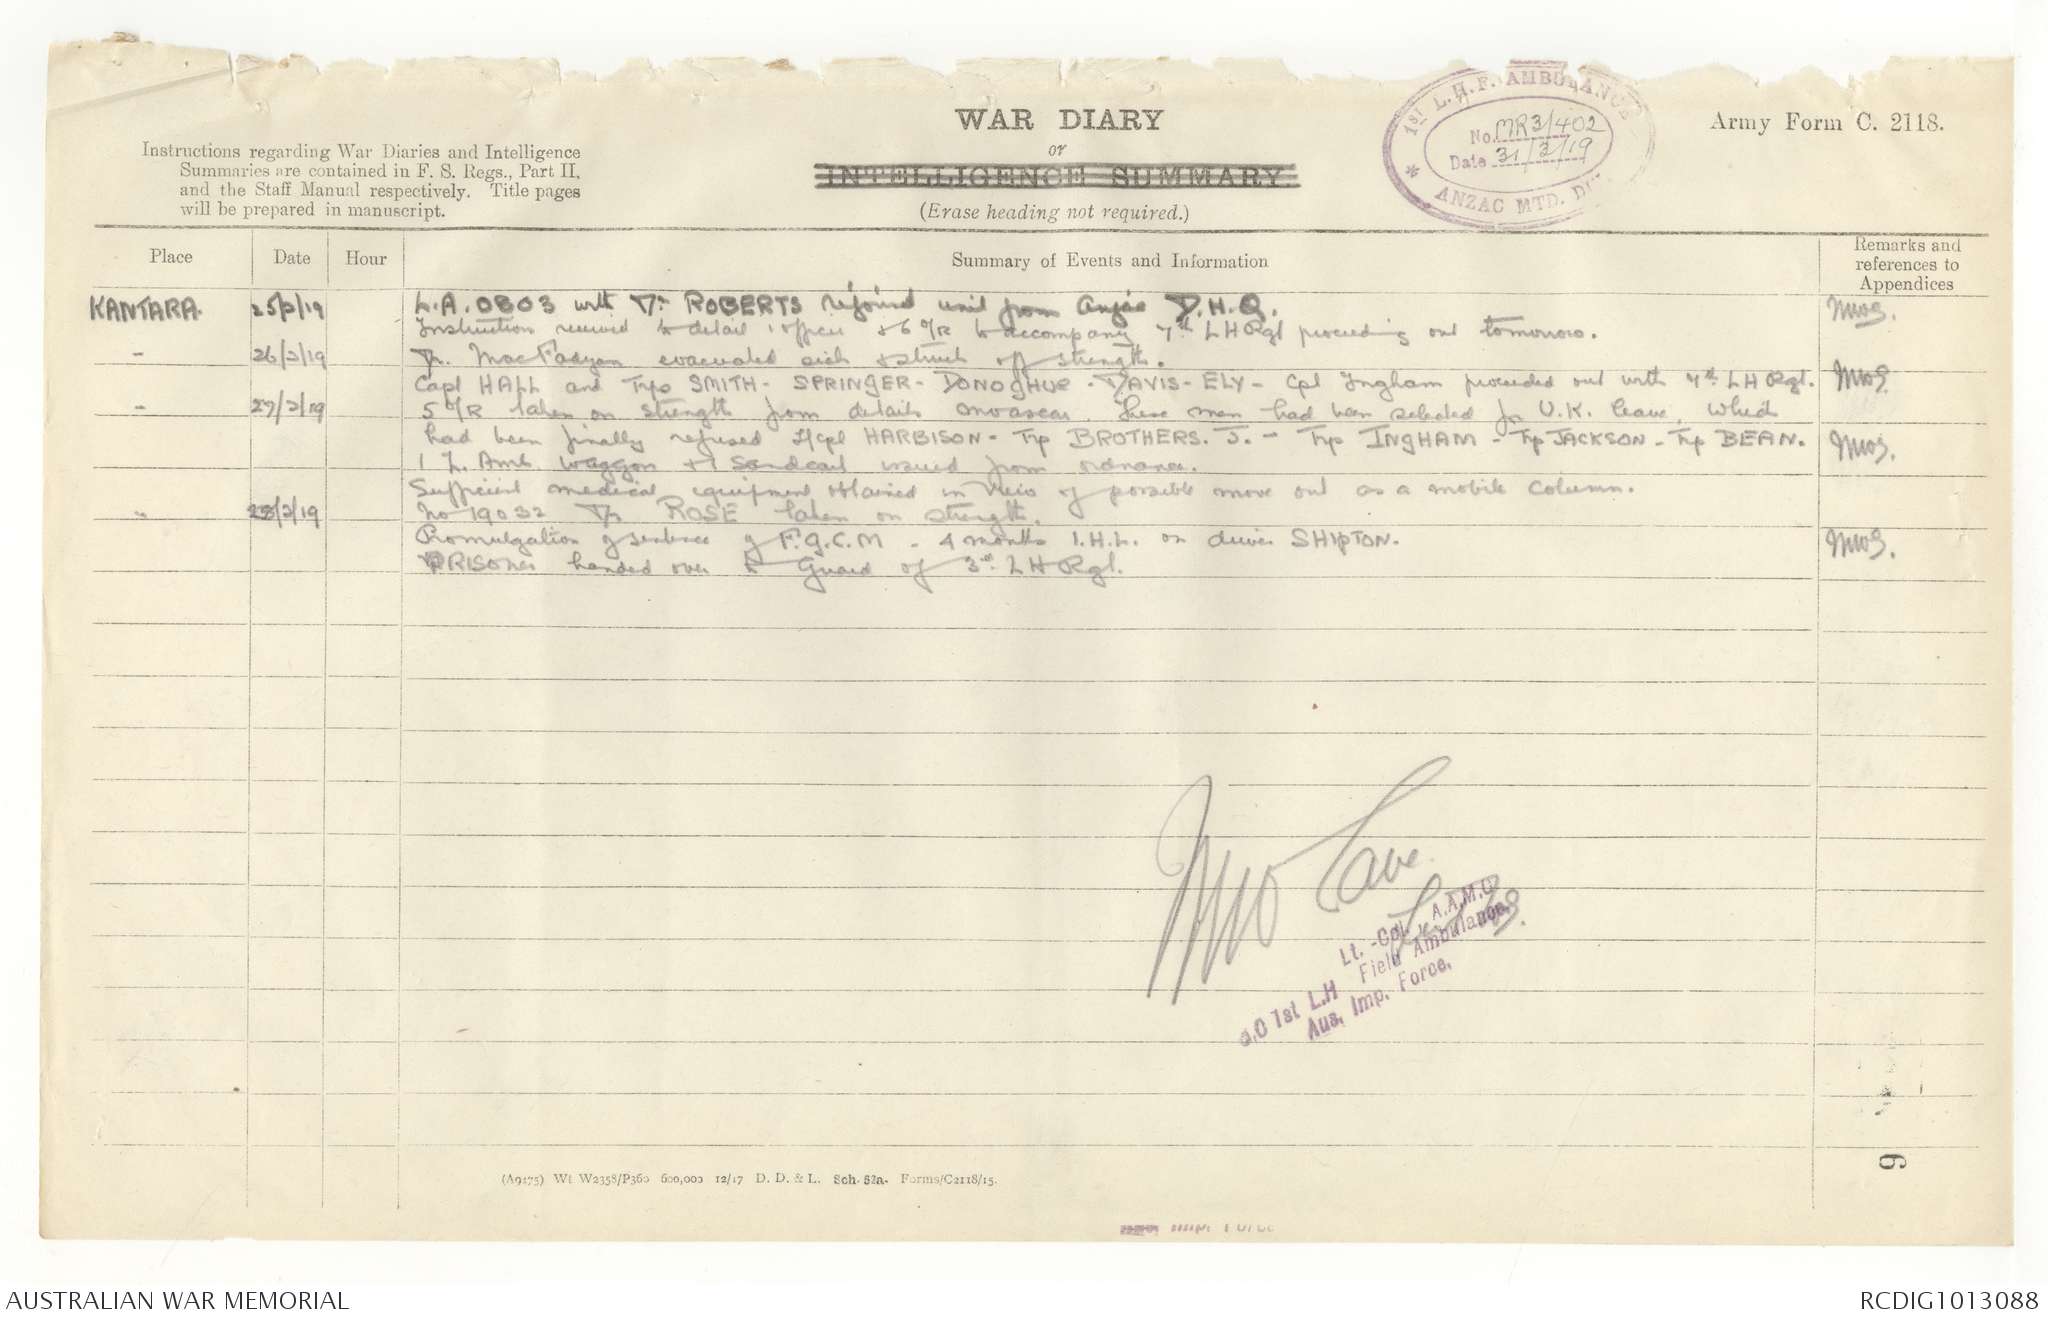 WAR DIARY
or
INTELLIGENCE SUMMARY.
(Erase heading not required.)
Army Form C. 2118.
Instructions regarding War Diaries and Intelligence
Summaries are contained in F. S. Regs., Part II,
and the Staff Manual respectively. Title pages
will be prepared in manuscript.
* 1ST L.H.F. AMBULANCE
No. MR3/402
Date 31/3/19
ANZAC MTD. DIV
Place
Date
Hour
Summary of Events and Information
Remarks and
references to
Appendices
KANTARA. 25/3/19 L.A. 0803 with Dr. ROBERTS rejoined unit from Anzac D.H.Q. MWS.
Instruction received to detail 1 officer & 6 O/R to accompany 7th LH Rgt proceeding out tomorrow.
- 26/3/19 Dr. MacFadyan evacuated sick & struck off strength.
Capt HALL and Trps SMITH - SPRINGER - DONOGHUE - DAVIS - ELY - Cpl Ingham proceeded out with 7th LH Rgt. MWS
- 27/3/19 5 O/R taken on strength from details Moascar. These men had been selected for U.K. leave, which
had been finally refused L/Cpl HARBISON - Trp BROTHERS. J. - Trp INGHAM - Trp JACKSON - Trp BEAN. MWS.
1 L. Amb. Waggon & 1 Sandcart issued from ordnance.
Sufficient medical equipment obtained in view of possible move out as a mobile column.
" 28/3/19 No 19032 Dr ROSE taken on strength.
Promulgation of sentence of F.G.C.M - 4 months I.H.L. on driver SHIPTON. MWS.
PRISONER handed over to Guard of 3rd LH Rgt.
Lt. -Col. A.A.M.C
O.C 1st L.H Field Ambulance,
Aus. Imp. Force.
6
(A9475) Wt W2358/P360 600,000 12/17 D. D. & L. Sch. 52a. Forms/C2118/15.
AUSTRALIAN WAR MEMORIAL
RCDIG1013088